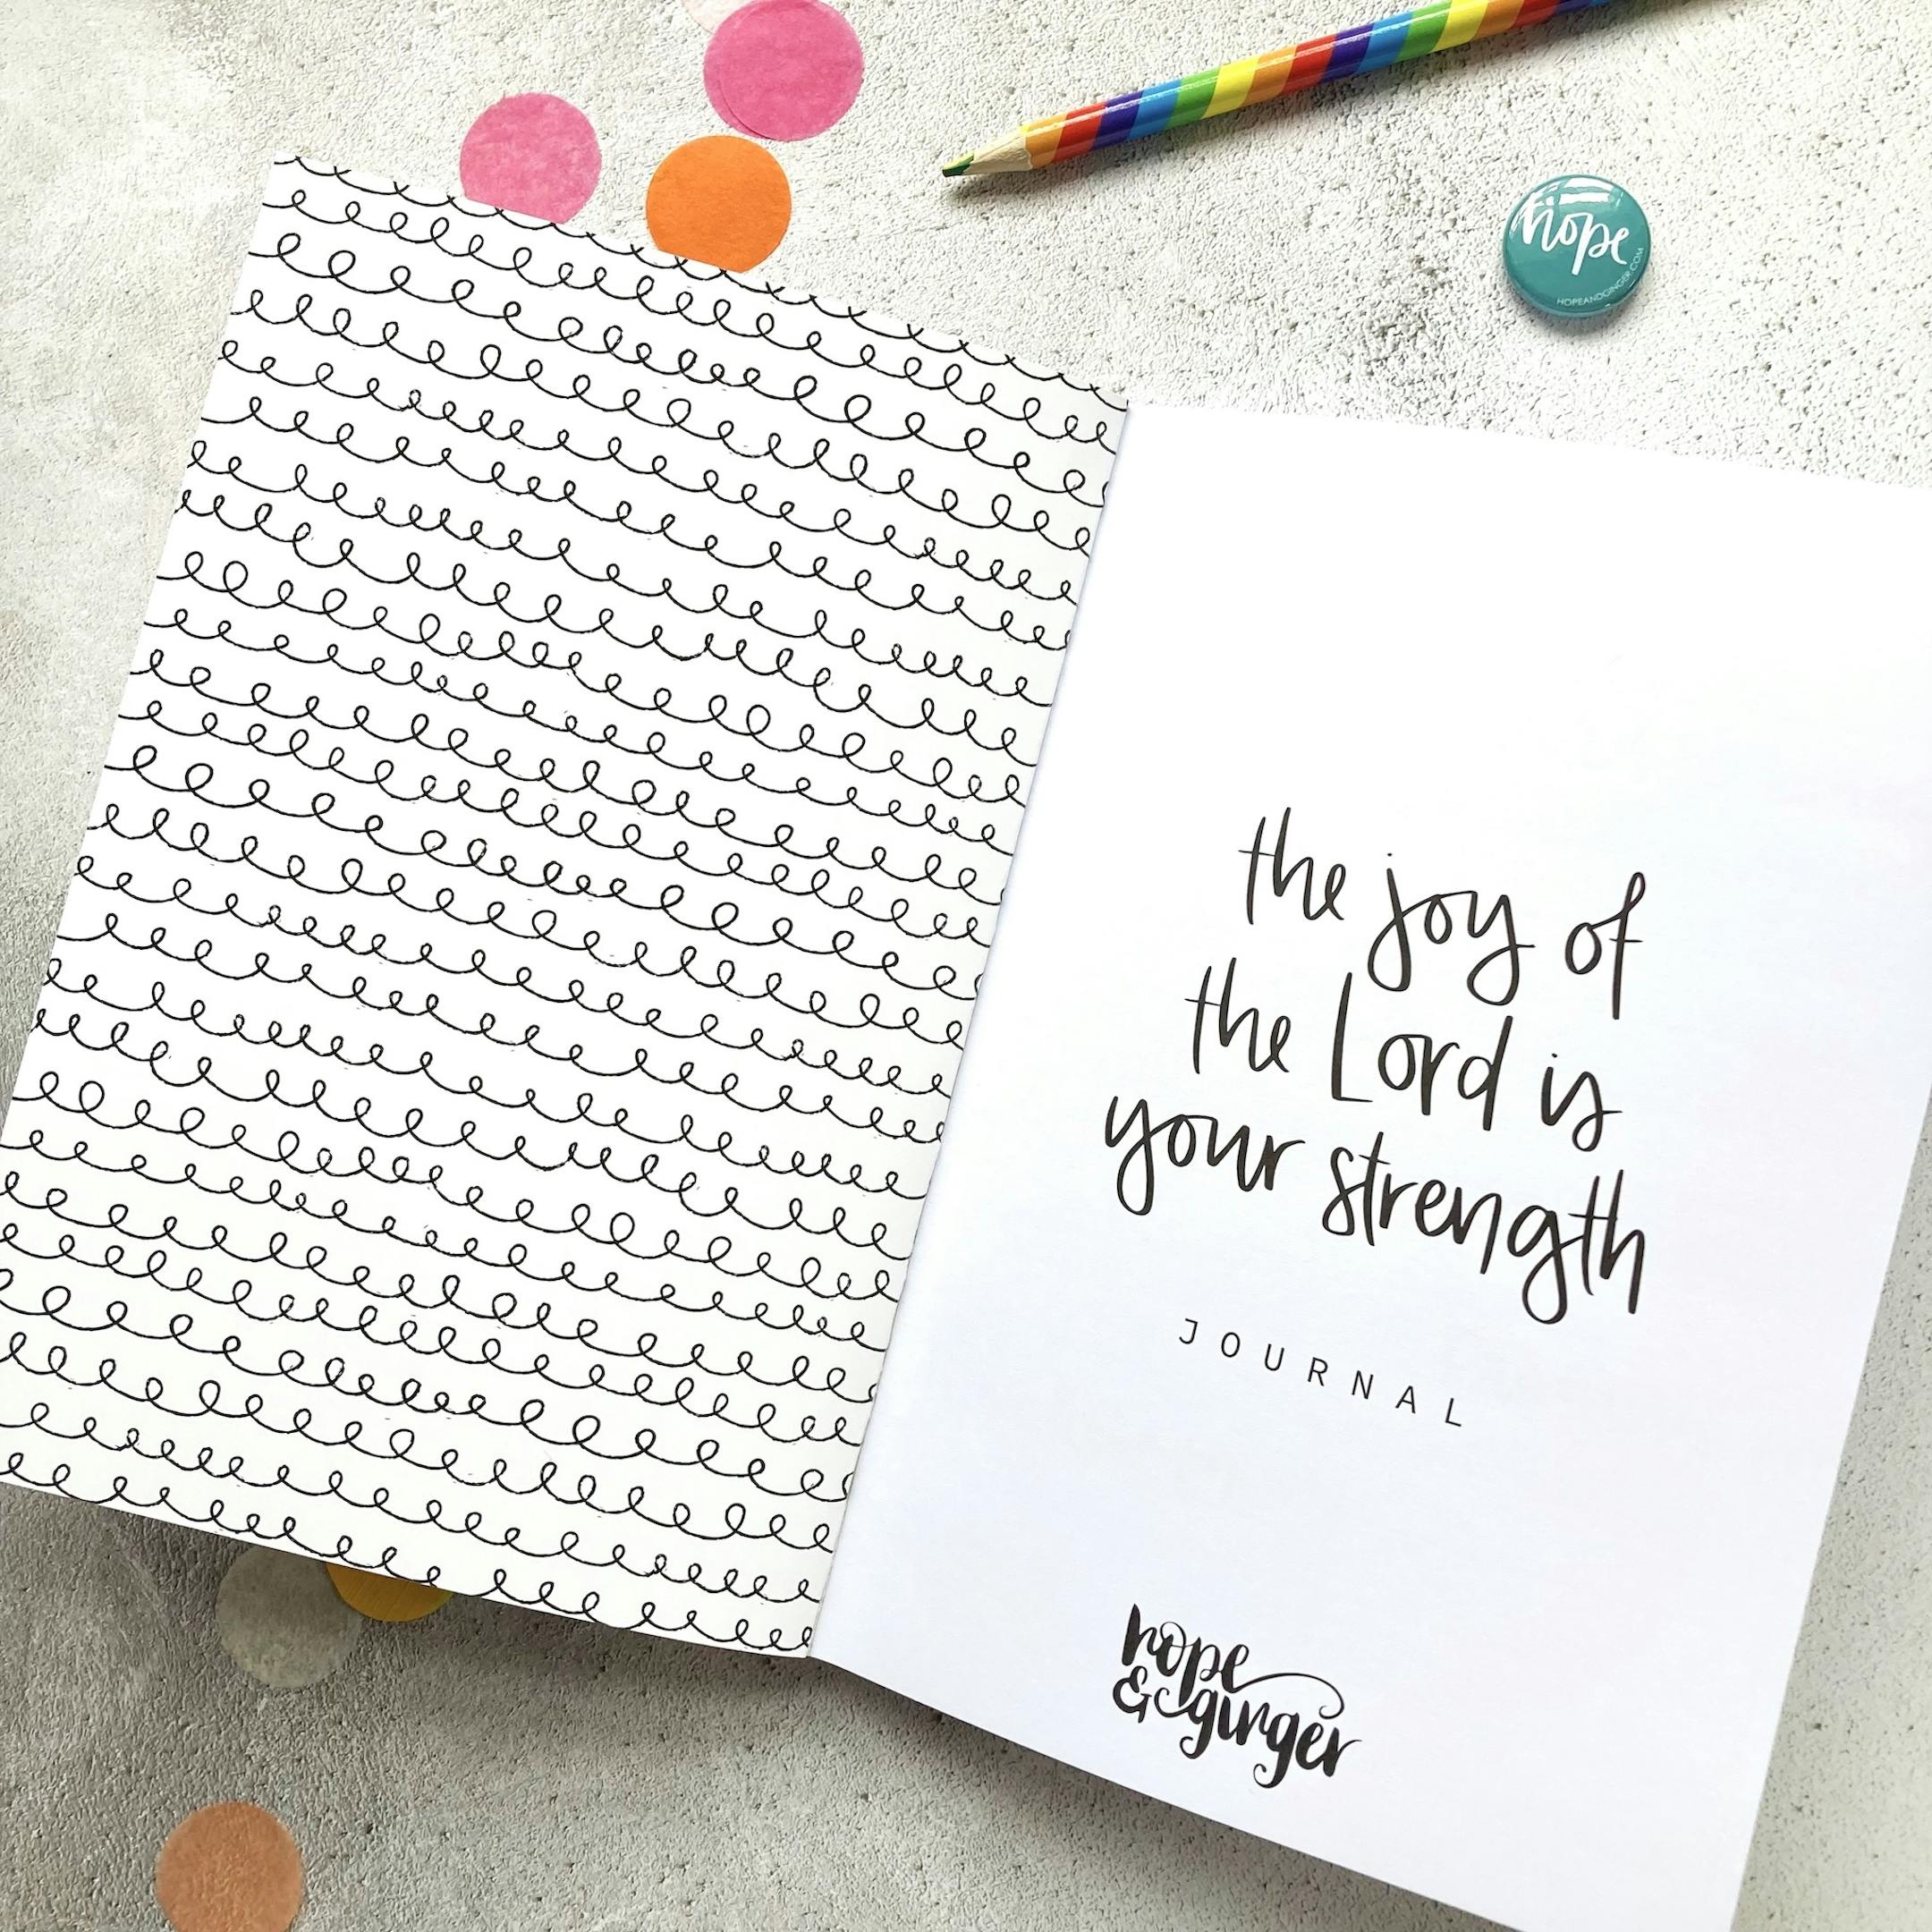 hope
HOPEANDGINGER.COM
the joy of
the Lord is
your strength
JOURNAL
hope
& ginger